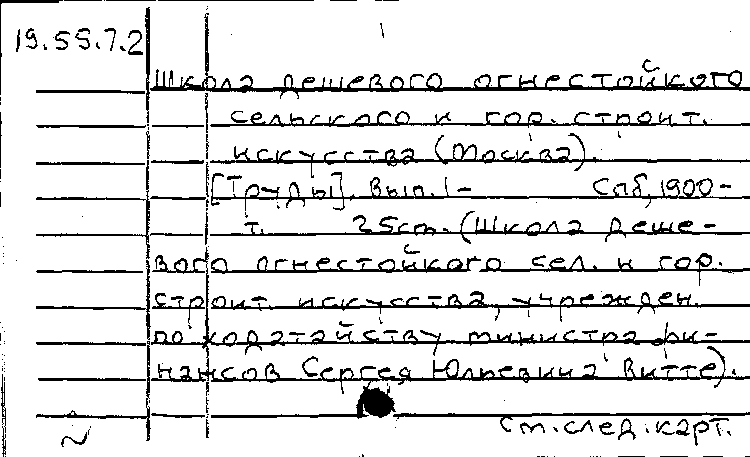 19.55.7.2
Школа дешевого огнестойкого
сельского и гор. строит.
искусства (Москва).
[Труды]. Вып. 1- Спб, 1900-
т. 25 cm. (Школа деше-
вого огнестойкого сел. и гор.
строит. искусства, учрежден.
по ходатайству министра фи-
нансов Сергея Юльевича Витте).
См. след. карт.